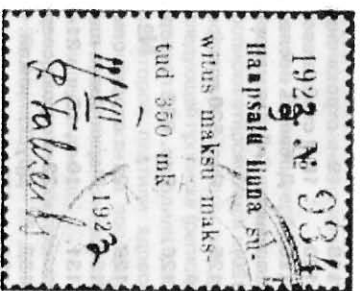 192 № 934
Haapsalu linna su-
witus maksu maks-
tud 350 mk
III/VII 192